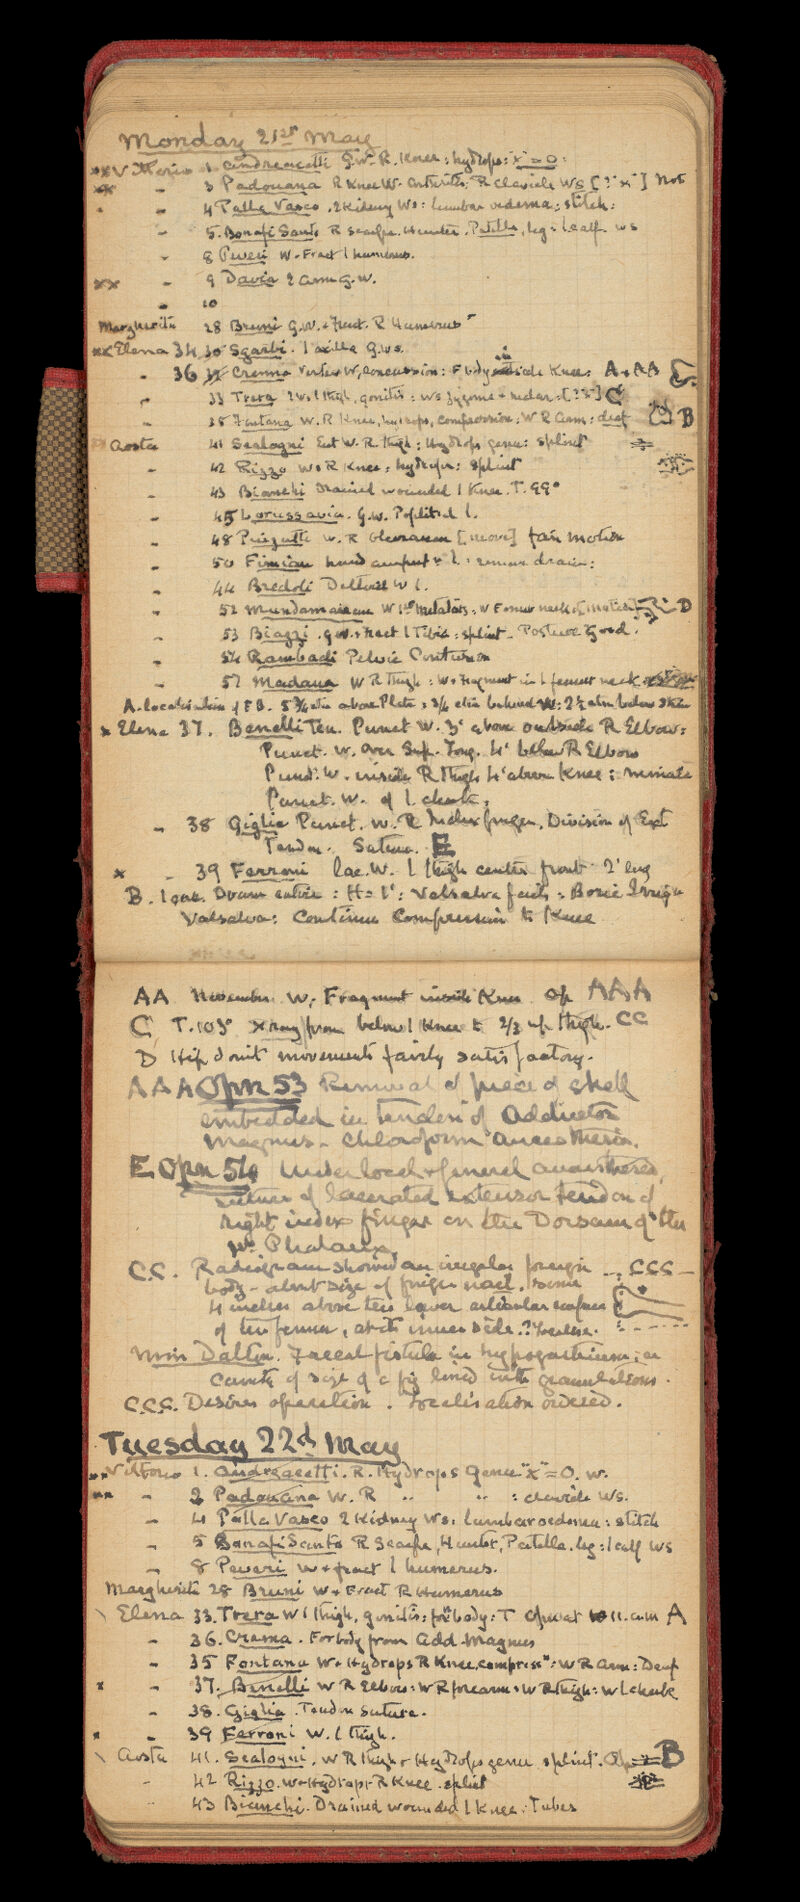 Monday 21st May
xx Vittorio 1 Andreacetti G.W. R. Knee: hydrops: "x" = 0.
xx - 3 Padouana R Knee W. arthritis; R clavicle Ws [? "x"] Not
- 4 Palla Vasco. 2 Kidney Ws: lumbar oedema: stitch:
- 5. Bonafi Santo R Scarpa. Hunter. Patella, leg: l calf ws
- 8 Peveri W. Fract l humerus.
xx - 9 Davia 2 arm G.W.
- 10
Margherita 28 Bruni G.W. + Fract. R Humerus
xx Elena 34 Sgarbi. l axilla G.Ws.
- 36 Crema Vertex W, concussion: F body inside Knee: A + AA E
- 33 Trera 2 Ws l thigh, gonitis: Ws zygoma + [?] C
- 35 Fontana W. R Knee, hydrops, compression: W R Arm: deaf B
Aosta 41 Scalogni Ext W. R thigh: Hydrops genu: splint
- 42 Rizzo Ws R Knee: hydrops: splint
- 43 Bianchi Drained wounded l Knee. T. 99°
- 45 Lorussavia. G.W. Popliteal l.
- 48 W. R Olecranon [ ] fair motion
- 50 Fimian hand amput l: drain:
- 44 Bredoli Deltoid W l.
- 52 W 1st Metatars: W Femur neck D
- 53 Biazzi. G.W. Fract l Tibia: splint. Posture good.
- 54 Rambadi Pelvic Contusion
- 57 Madana W R Thigh: W + Fragment in l femur neck
A. Localisation of F.B. 5 3/4 above Plate: 3/4 behind W: 2 1/2 below skin
x Elena 37. Benelli Ten. Punct W. 3" above outside R Elbow:
Punct. W. over Sup. Long. 4" below R Elbow
Punct. W. inside R Thigh 4" above Knee: minute
Punct. W. of l cheek.
- 38 Giglia Punct. W. R Index finger. Division of Ext
Tendon. Suture. E
x - 39 Ferroni lac. W. l thigh center front 2" long
B. l ear. Drum entire: H = 1": Valsalva fails: Boric Irrign
Valsalva: Continue Compression to Knee
AA November W. Fragment inside Knee Op AAA
C T. 103° Xray from below l Knee to 2/3 up thigh. CC
D Hip Joint movements fairly satisfactory.
AAA Opn 53 Removal of piece of shell
embedded in tendon of Adductor
Magnus. Chloroform Anaesthesia.
E Opn 54 Under local + general anaesthesia,
suture of lacerated extensor tendon of
right index finger on the Dorsum of the
Phalanx.
C.C. Radiogram showed an irregular foreign CCC
body - about size of finger nail, some
4 inches above the lower articular surface
of the femur, at its inner side. ? Localise.
Miss Dalton. Faecal fistula in hypogastrium; a
cavity of size of a fig lined with granulations.
C.C.C. Desires operation. Localisation ordered.
Tuesday 22d May
xx Vittorio 1. Andreacetti. R. Hydrops Genu "x" = 0. W.
xx - 2 Padouana W. R " " : clavicle Ws.
- 4 Palla Vasco 2 Kidney Ws: lumbar oedema: stitch
- 5 Bonafi Santo R Scarpa, Hunter, Patella. leg: l calf Ws
- 8 Peveri W + fract l humerus.
Margherita 28 Bruni W + Fract R Humerus
\ Elena 33. Trera W l thigh, gonitis: forn body: T Opn at 11. a.m A
- 36. Crema. For body from Add. Magnus
- 35 Fontana W + Hydrops R Knee, compressn: W R Arm: Deaf
x - 37. Benelli W R Elbow: W R forearm: W R thigh: W l cheek
- 38. Giglia. Tendon Suture.
x - 39 Ferroni W. l thigh.
\ Aosta 41. Scalogni. W R thigh + Hydrops genu splint. B
- 42 Rizzo. W + Hydrops R Knee. splint
- 43 Bianchi. Drained wounded l Knee: Tubes